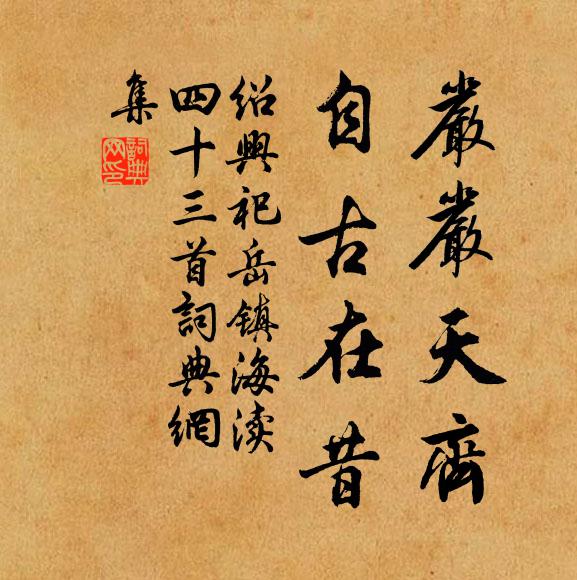 嚴嚴天齊
自古在昔
紹興祀岳鎮海渎
四十三首詞典網
集
詞典
网印